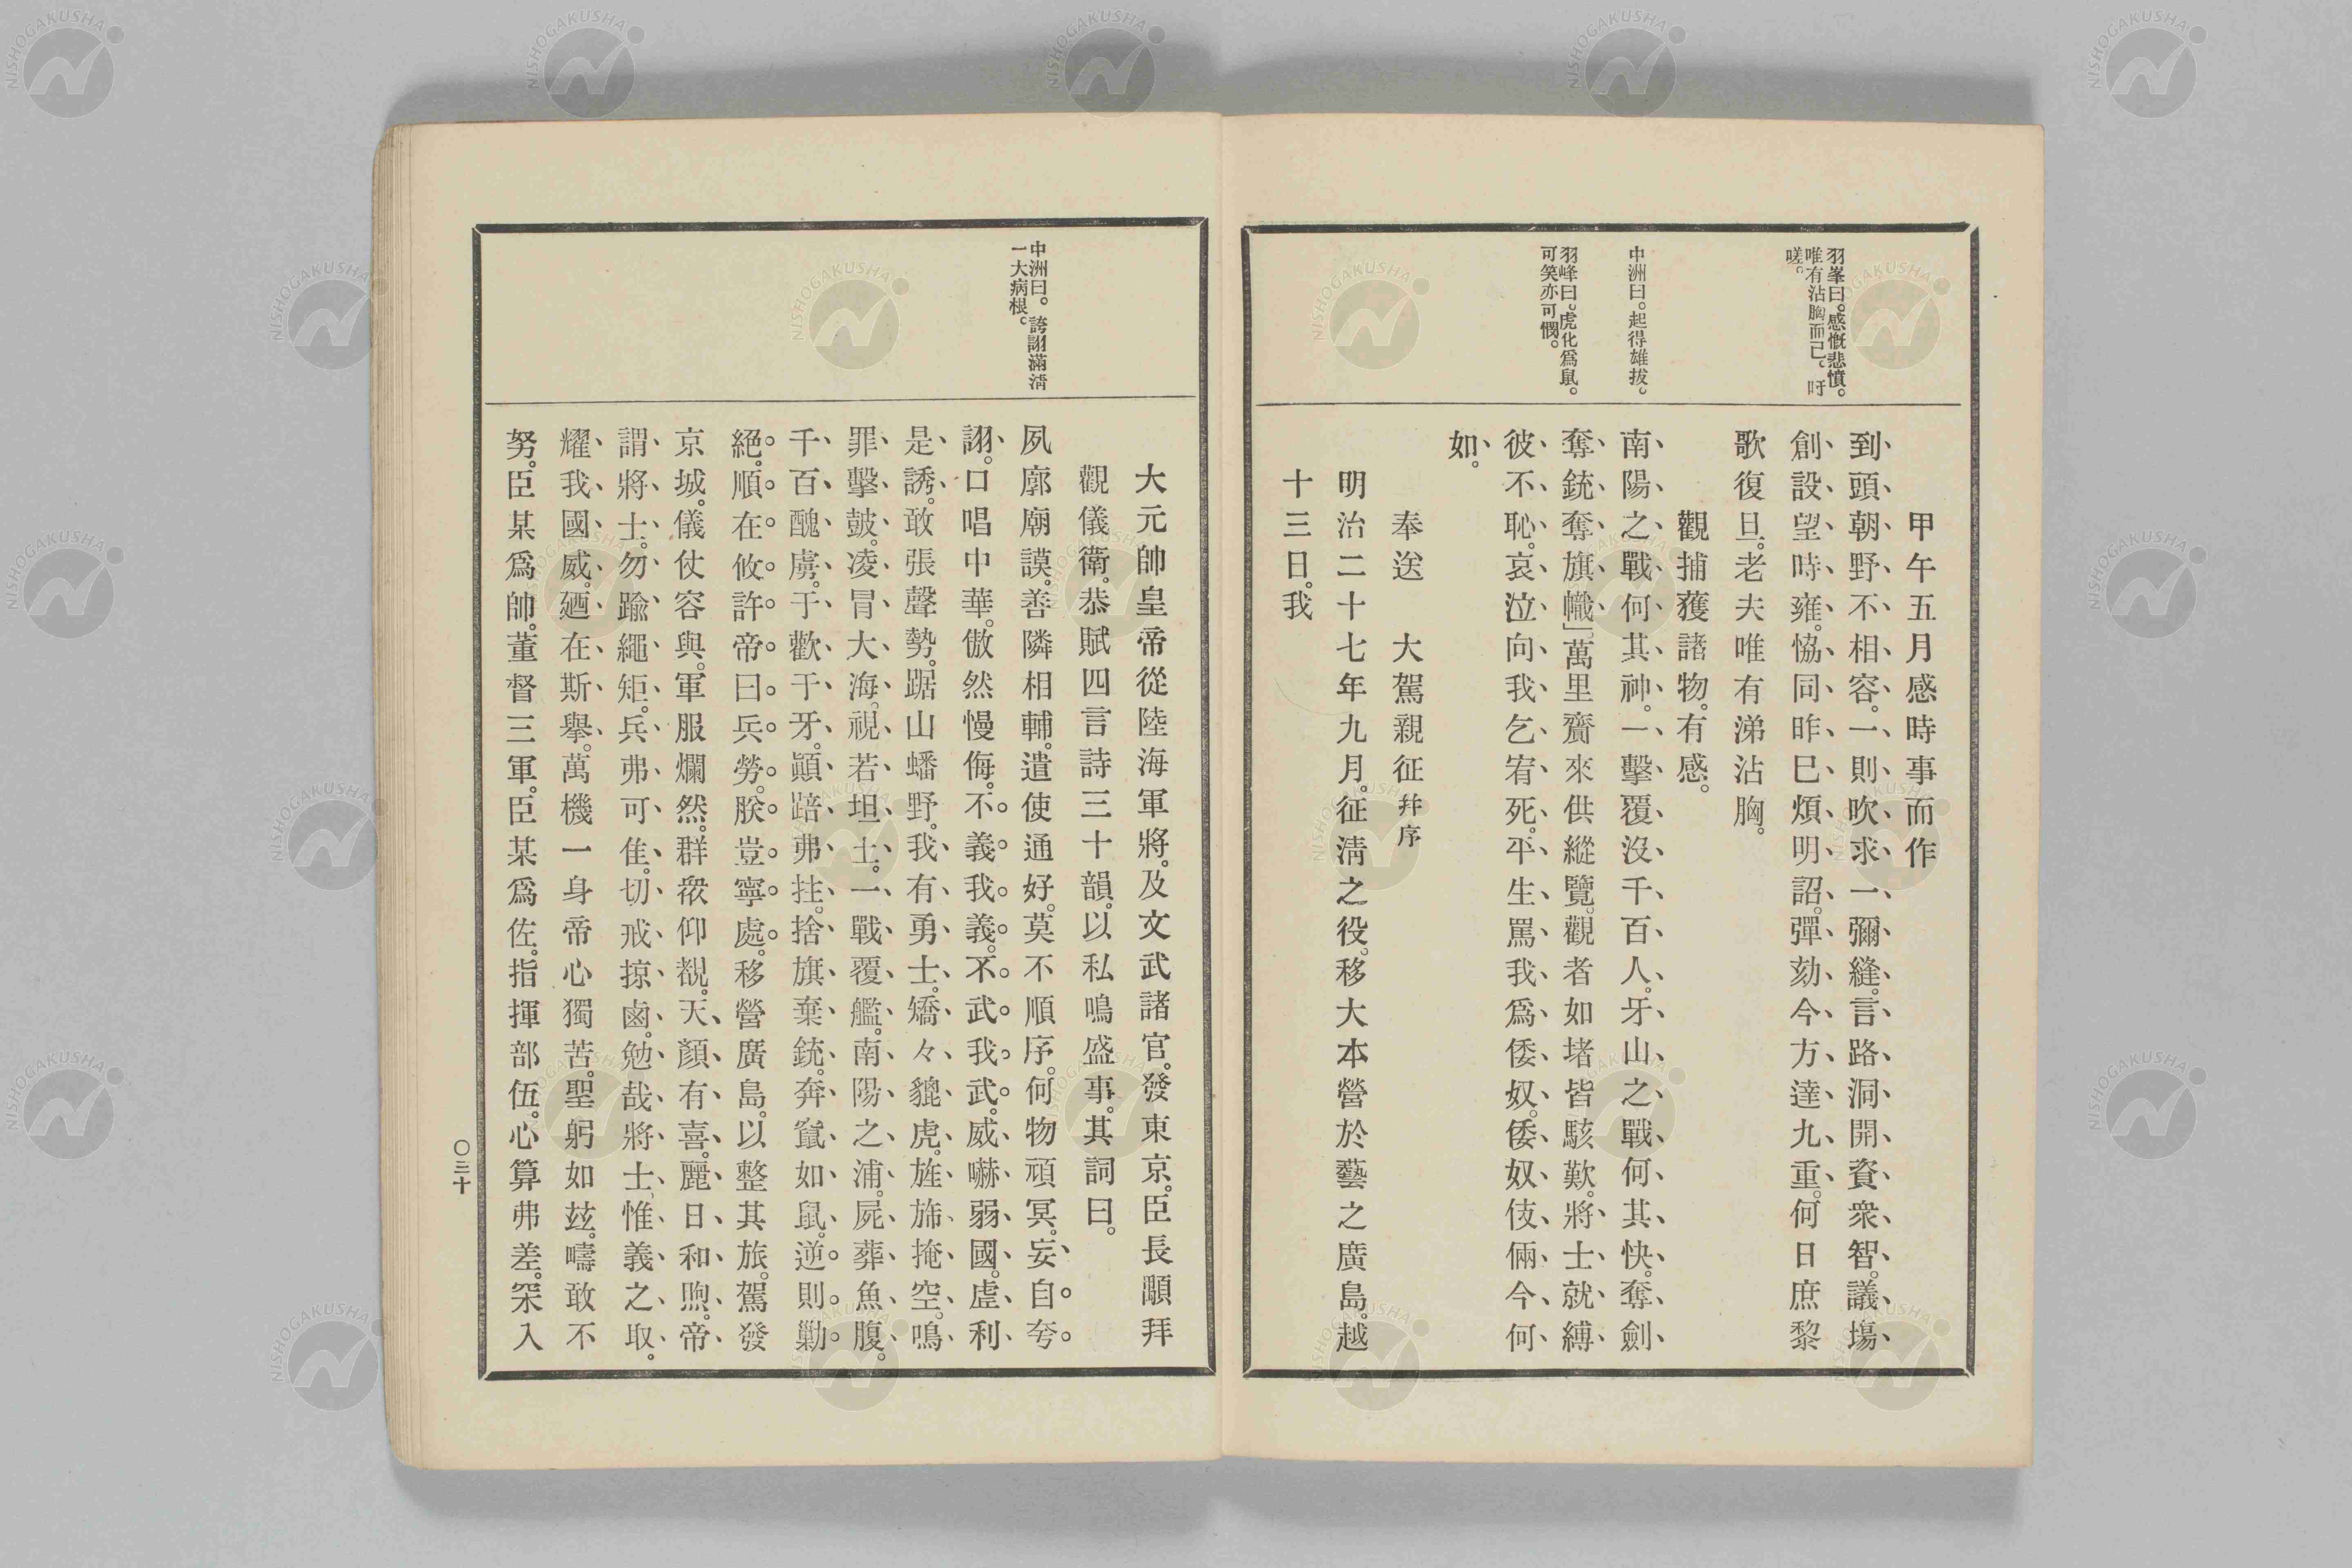 甲午五月感時事而作
到頭朝野不相容。一則吹求一彌縫。言路洞開資衆智。議塲
創設望時雍。恊同昨巳煩明詔。彈劾今方達九重。何日庶黎
歌復旦。老夫唯有涕沾胸。
觀捕獲諸物。有感。
南陽之戰何其神。一擊覆沒千百人。牙山之戰何其快。奪劍
奪銃奪旗幟」。萬里齎來供縱覽。觀者如堵皆駭歎。將士就縛
彼不恥。哀泣向我乞宥死。平生罵我爲倭奴。倭奴伎倆今何
如。
奉送 大駕親征幷序
明治二十七年九月。征淸之役。移大本營於藝之廣島。越
十三日。我
羽峯曰。感慨悲憤。
唯有沾胸而已。吁
嗟。
中洲曰。起得雄拔。
羽峰曰。虎化爲鼠。
可笑亦可憫。
大元帥皇帝從陸海軍將。及文武諸官。發東京。臣長顒拜
觀儀衛。恭賦四言詩三十韻。以私鳴盛事。其詞曰。
夙廓廟謨。善隣相輔。遣使通好。莫不順序。何物頑冥。妄自夸
詡。口唱中華。傲然慢侮。不義我義。不武我武。威嚇弱國。虛利
是誘。敢張聲勢。踞山蟠野。我有勇士。矯々貔虎。旌旆掩空。鳴
罪擊鼓。凌冒大海。視若坦土。一戰覆艦。南陽之浦。屍葬魚腹。
千百醜虜。于歡于牙。顚踣弗拄。捨旗棄銃。奔竄如鼠。逆則勦
絕。順在攸許。帝曰兵勞。朕豈寧處。移營廣島。以整其旅。駕發
京城。儀仗容與。軍服爛然。群衆仰覩。天顏有喜。麗日和煦。帝
謂將士。勿踰繩矩。兵弗可隹。切戒掠鹵。勉哉將士。惟義之取。
耀我國威。廼在斯擧。萬機一身帝心獨苦。聖躬如玆。疇敢不
努。臣某爲帥。董督三軍。臣某爲佐。指揮部伍。心算弗差。罙入
中洲曰。誇詡滿淸
一大病根。
〇三十
NISHOGAKUSHA